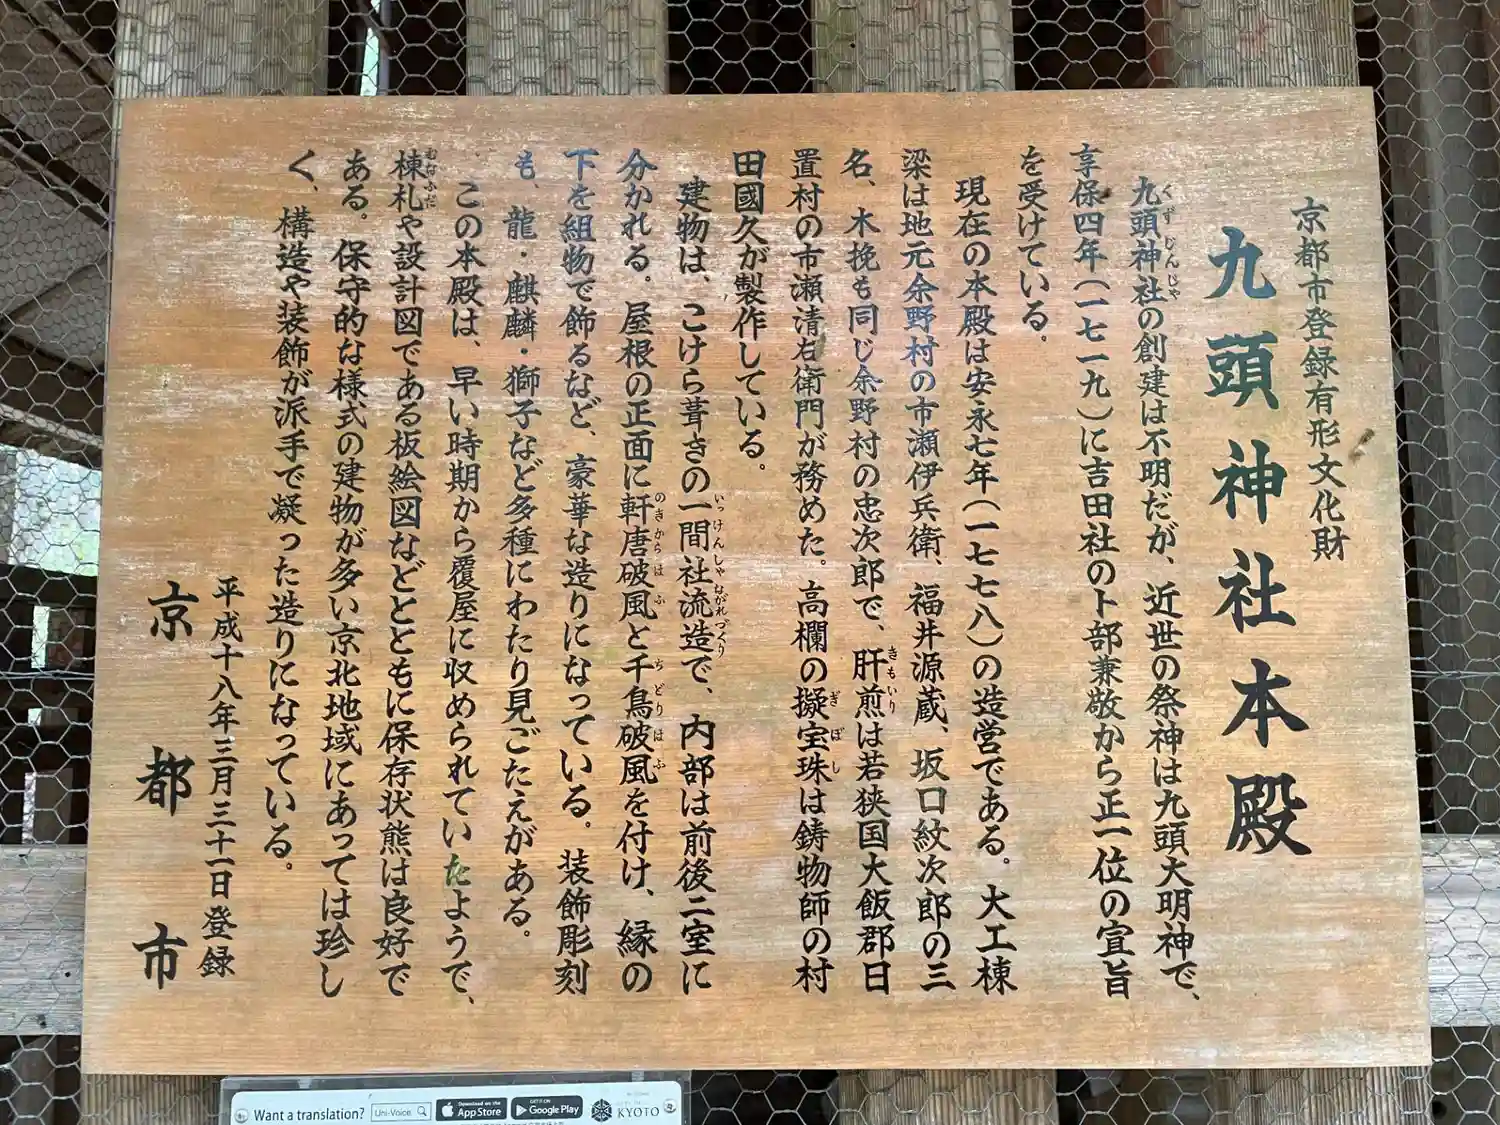 京都市登録有形文化財
九頭神社本殿
くずじんじゃ
九頭神社の創建は不明だが、近世の祭神は九頭大明神で、
享保四年(一七一九)に吉田社の卜部兼敬から正一位の宣旨
を受けている。
現在の本殿は安永七年(一七七八)の造営である。大工棟
梁は地元余野村の市瀬伊兵衛、福井源蔵、坂口紋次郎の三
きもいり
名、木挽も同じ余野村の忠次郎で、肝煎は若狭国大飯郡日
ぎぼし
置村の市瀬清右衛門が務めた。高欄の擬宝珠は鋳物師の村
田國久が製作している。
いっけんしゃながれづくり
建物は、こけら葺きの一間社流造で、内部は前後二室に
のきからはふ ちどりはふ
分かれる。屋根の正面に軒唐破風と千鳥破風を付け、縁の
下を組物で飾るなど、豪華な造りになっている。装飾彫刻
も、龍・麒麟・獅子など多種にわたり見ごたえがある。
この本殿は、早い時期から覆屋に収められていたようで、
むねふだ
棟札や設計図である板絵図などとともに保存状態は良好で
ある。保守的な様式の建物が多い京北地域にあっては珍し
く、構造や装飾が派手で凝った造りになっている。
平成十八年三月三十一日登録
京都市
Want a translation? Uni-Voice Download on the App Store GET IT ON Google Play KYOTO